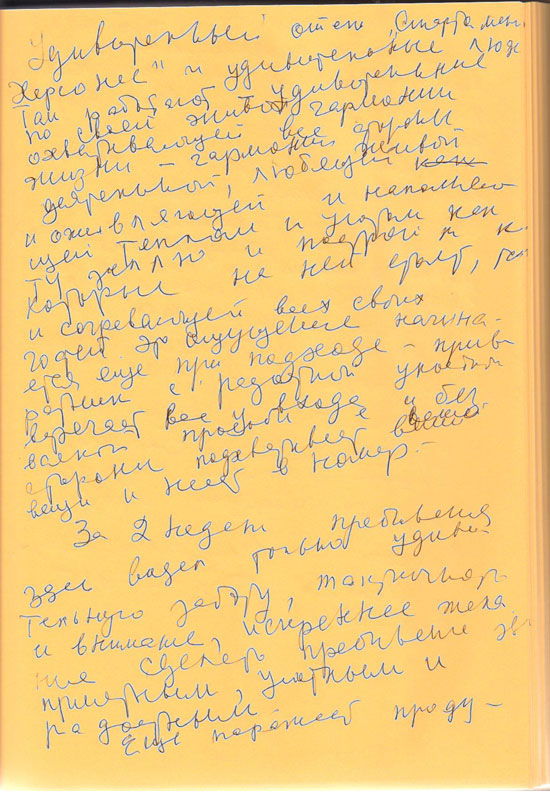 Удивительный отель „Спарта мен
Херсонес" и удивительные люди
там работают удивительные
по своей гармонии
охватывающей все стороны
жизни – гармонии живой
деятельной, любящей
и оживляющей и наполняю
щей теплом и уютом как
ту землю и
которые на ней стоят,
и согревающей всех своих
гостей. Это ощущение начина-
ется ещё при подходе – прив
ратник с радостной улыбкой
встречает вас у входа и без
всякой просьбы с вашей
стороны подхватывает
вещи и несёт в номер. –
За 2 недели пребывания
здесь видел только удиви-
тельную заботу, тактичность
и внимание, искреннее жела
ние сделать пребывание
приятным, уютным и
радостным.
Ещё поражает проду –